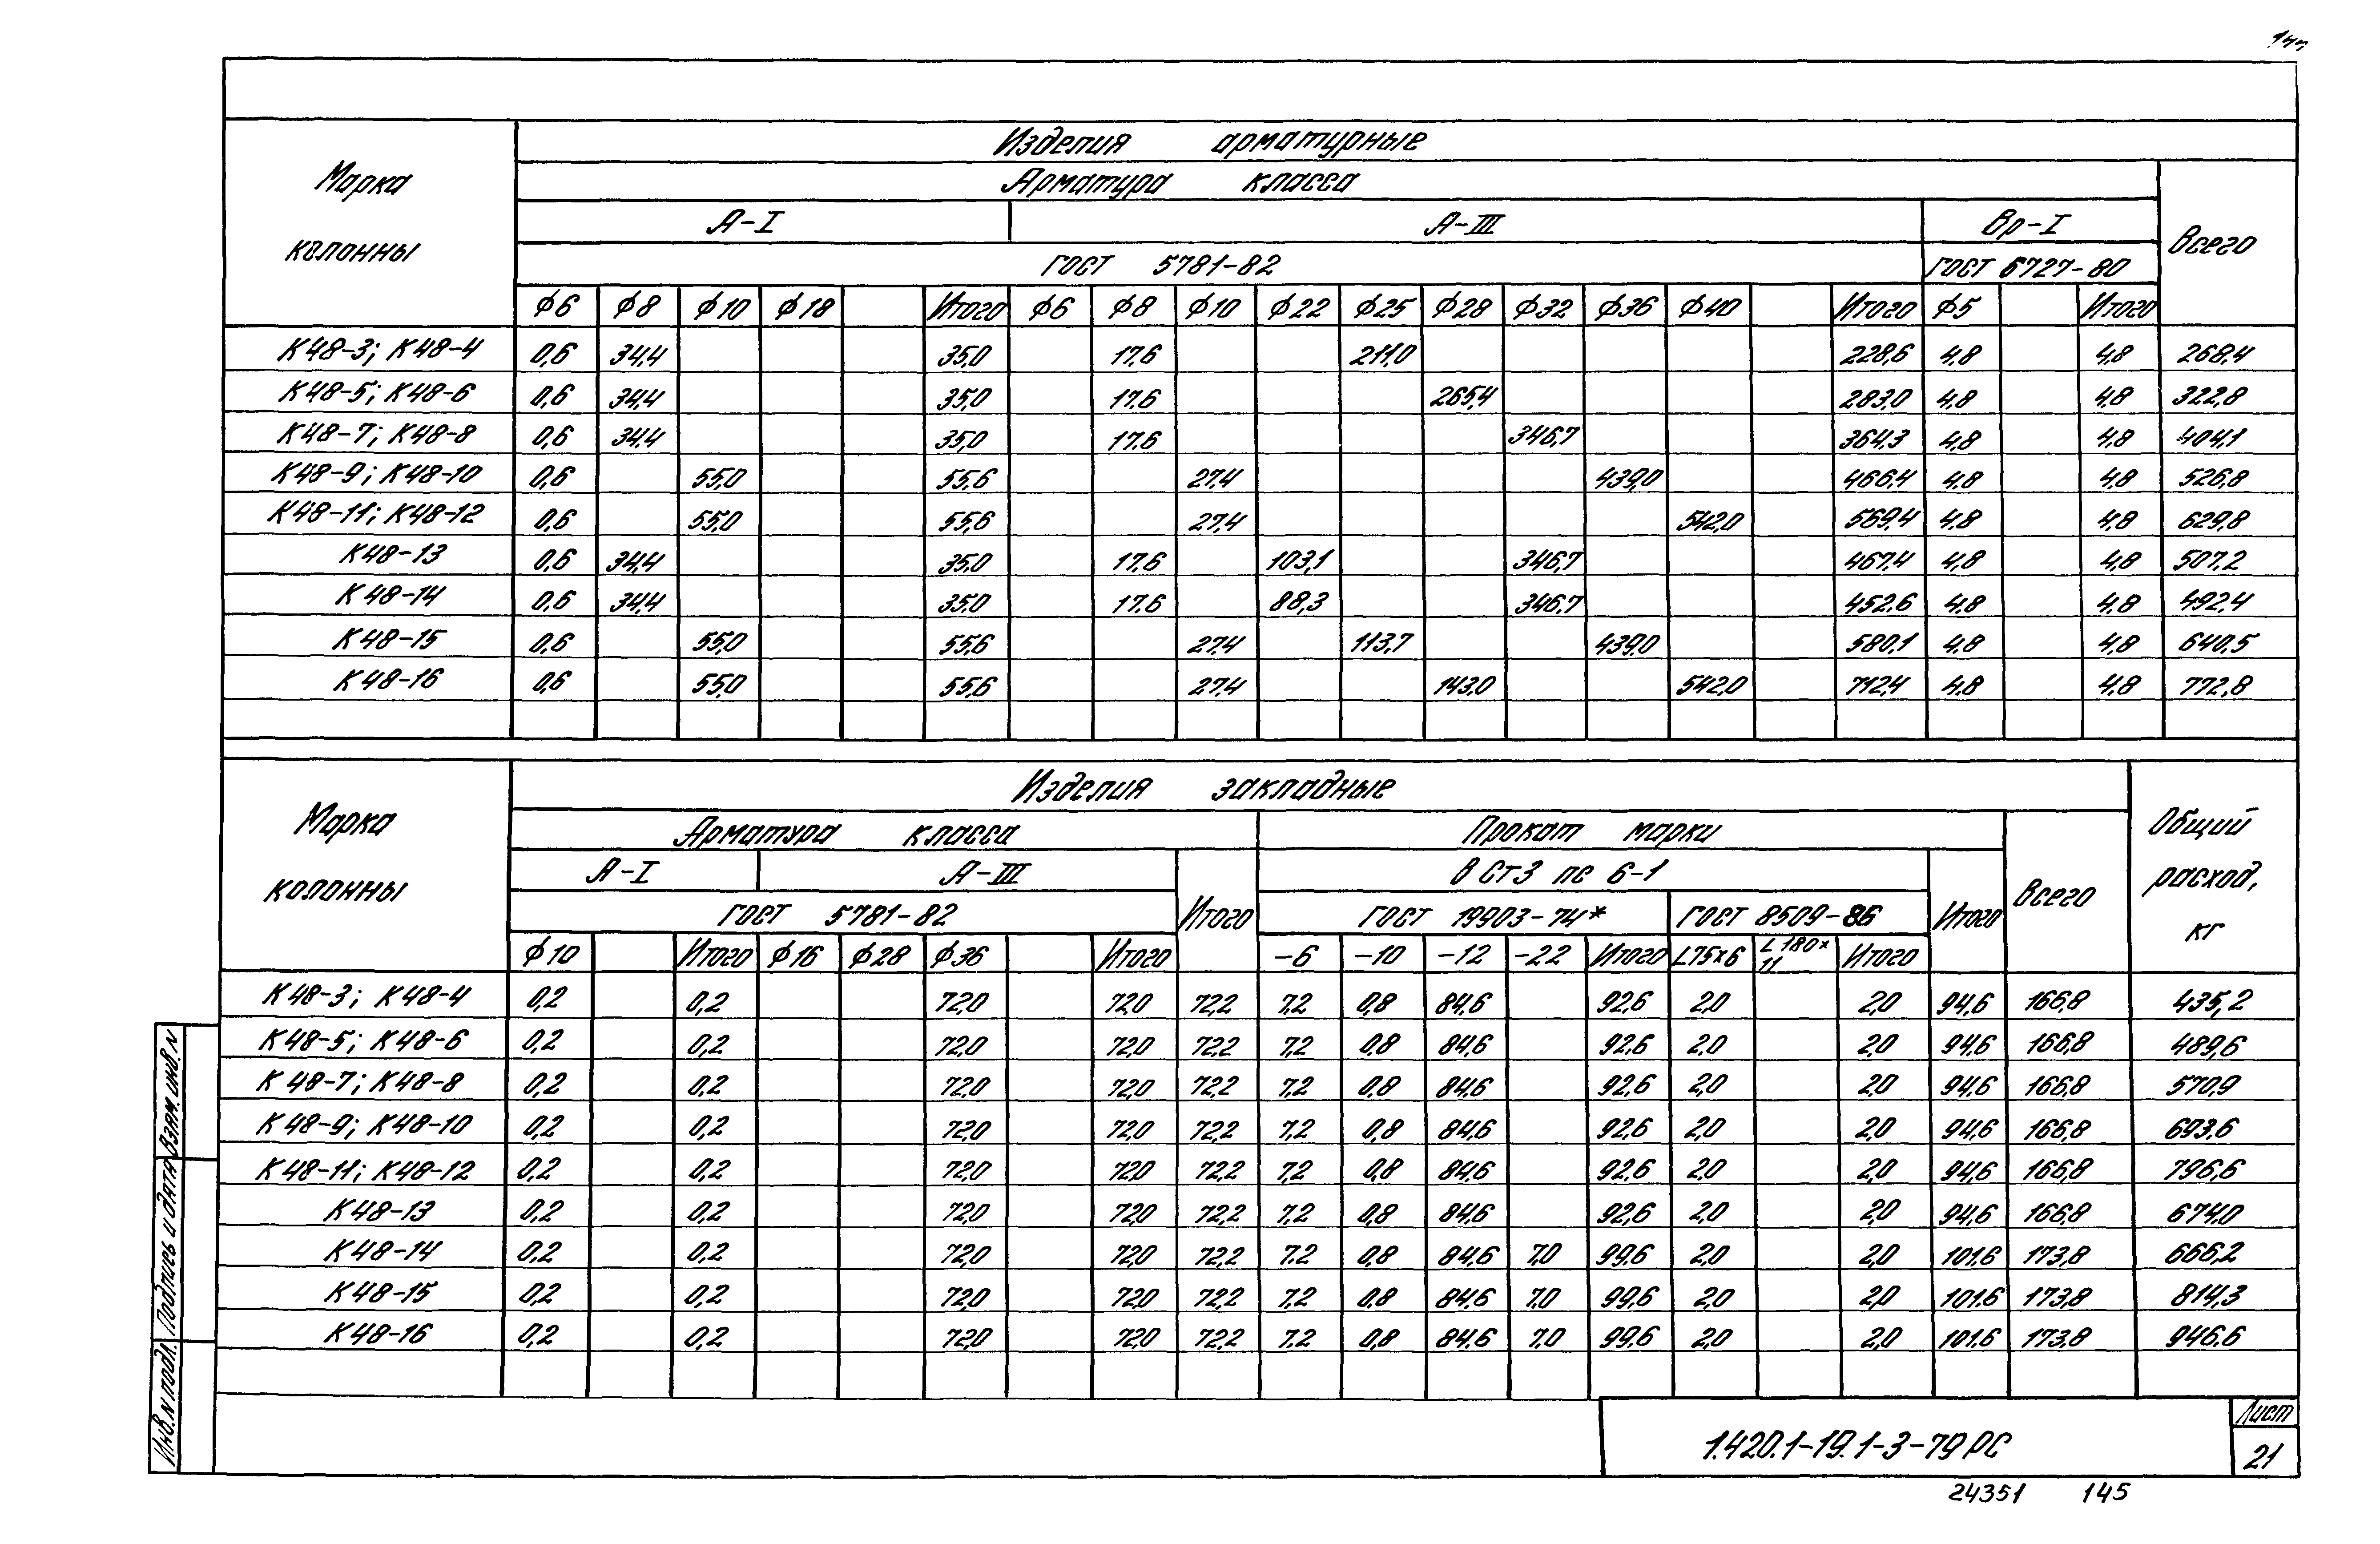 Изделия арматурные
Марка колонны
Арматура класса
Всего
А-I А-III Вр-I
ГОСТ 5781-82 ГОСТ 6727-80
ф6 ф8 ф10 ф18 Итого ф6 ф8 ф10 ф22 ф25 ф28 ф32 ф36 ф40 Итого ф5 Итого
К48-3; К48-4 0,6 34,4 35,0 17,6 211,0 228,6 4,8 4,8 268,4
К48-5; К48-6 0,6 34,4 35,0 17,6 265,4 283,0 4,8 4,8 322,8
К48-7; К48-8 0,6 34,4 35,0 17,6 346,7 364,3 4,8 4,8 404,1
К48-9; К48-10 0,6 55,0 55,6 27,4 439,0 466,4 4,8 4,8 526,8
К48-11; К48-12 0,6 55,0 55,6 27,4 542,0 569,4 4,8 4,8 629,8
К48-13 0,6 34,4 35,0 17,6 103,1 346,7 467,4 4,8 4,8 507,2
К48-14 0,6 34,4 35,0 17,6 88,3 346,7 452,6 4,8 4,8 492,4
К48-15 0,6 55,0 55,6 27,4 113,7 439,0 580,1 4,8 4,8 640,5
К48-16 0,6 55,0 55,6 27,4 143,0 542,0 712,4 4,8 4,8 772,8
Изделия закладные
Марка колонны
Арматура класса Прокат марки
Общий расход, кг
А-I А-III
Итого
В Ст3 пс 6-1
Итого
Всего
ГОСТ 5781-82 ГОСТ 19903-74* ГОСТ 8509-86
ф10 Итого ф16 ф28 ф36 Итого -6 -10 -12 -22 Итого L75×6 L180×11 Итого
К48-3; К48-4 0,2 0,2 72,0 72,0 72,2 7,2 0,8 84,6 92,6 2,0 2,0 94,6 166,8 435,2
К48-5; К48-6 0,2 0,2 72,0 72,0 72,2 7,2 0,8 84,6 92,6 2,0 2,0 94,6 166,8 489,6
К48-7; К48-8 0,2 0,2 72,0 72,0 72,2 7,2 0,8 84,6 92,6 2,0 2,0 94,6 166,8 570,9
К48-9; К48-10 0,2 0,2 72,0 72,0 72,2 7,2 0,8 84,6 92,6 2,0 2,0 94,6 166,8 693,6
К48-11; К48-12 0,2 0,2 72,0 72,0 72,2 7,2 0,8 84,6 92,6 2,0 2,0 94,6 166,8 796,6
К48-13 0,2 0,2 72,0 72,0 72,2 7,2 0,8 84,6 92,6 2,0 2,0 94,6 166,8 674,0
К48-14 0,2 0,2 72,0 72,0 72,2 7,2 0,8 84,6 7,0 99,6 2,0 2,0 101,6 173,8 666,2
К48-15 0,2 0,2 72,0 72,0 72,2 7,2 0,8 84,6 7,0 99,6 2,0 2,0 101,6 173,8 814,3
К48-16 0,2 0,2 72,0 72,0 72,2 7,2 0,8 84,6 7,0 99,6 2,0 2,0 101,6 173,8 946,6
Взам. инв. N
Подпись и дата
Инв. N подл.
1.420.1-19.1-3-79РС
Лист
21
24351 145